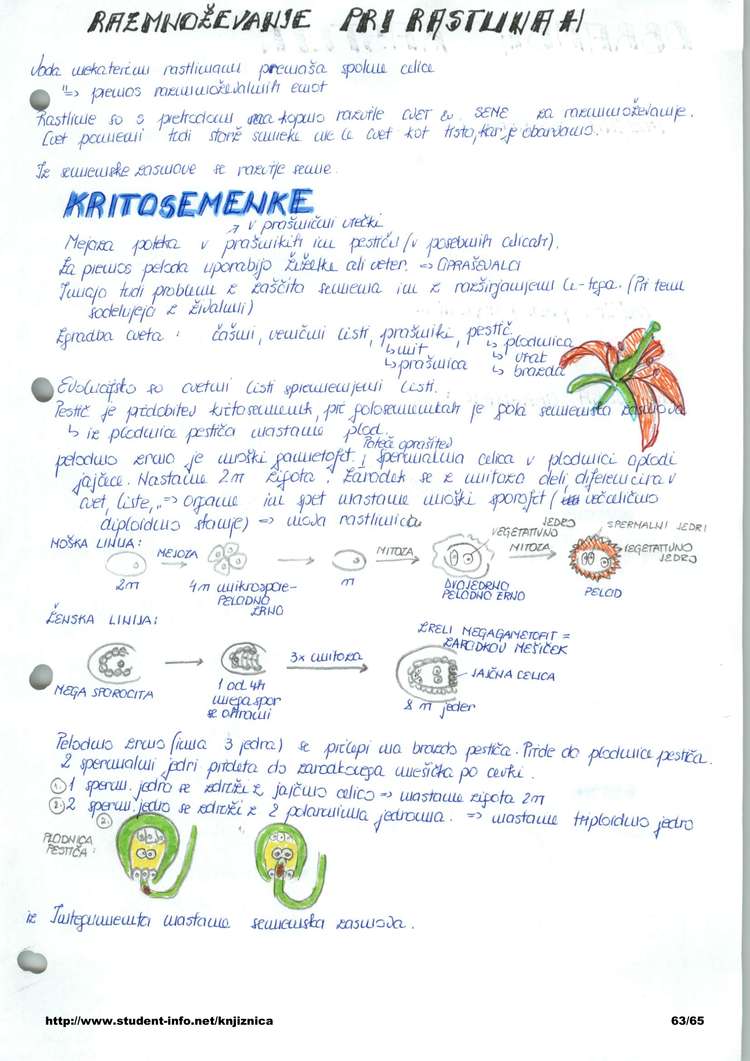 RAZMNOŽEVANJE PRI RASTLINAH
Voda nekaterim rastlinam prenaša spolne celice
"=> prenos razmnoževalnih enot
Rastline so s prehodom na kopno razvile CVET in SEME za razmnoževanje.
Cvet pomeni tudi storž smreke ne le cvet kot tisto, kar je obarvano.
Iz semenske zasnove se razvije seme.
KRITOSEMENKE
↗ v prašnični vrečki
Mejoza poteka v prašnikih in pestiču (v posebnih celicah).
Za prenos peloda uporabijo žuželke ali veter. => OPRAŠEVALCI
Imajo tudi probleme z zaščito semena in z razširjanjem le-tega. (Pri tem
sodelujejo z živalmi)
Zgradba cveta : čašni, venčni listi, prašniki, pestič.
↳ nit ↳ plodnica
↳ prašnica ↳ vrat
↳ brazda
Evolucijsko so cvetni listi spremenjeni listi.
Pestič je pridobitev kritosemenk, pri golosemenkah je gola semenska zasnova
↳ iz plodnice pestiča nastane plod.
Poteče oprašitev
pelodno zrno je moški gametofit, spermalna celica v plodnici oplodi
jajčece. Nastane 2n zigota. Zarodek se z mitozo deli, diferencira v
cvet, liste, .. => organe in spet nastane moški sporofit (večcelično
diploidno stanje) => nova rastlinica
MOŠKA LINIJA:
MEJOZA
MITOZA
VEGETATIVNO
JEDRO
MITOZA
SPERMALNI JEDRI
VEGETATIVNO
JEDRO
2n
4n mikrospore-
PELODNO
ZRNO
n
DVOJEDRNO
PELODNO ZRNO
PELOD
ŽENSKA LINIJA:
3x mitoza
ZRELI MEGAGAMETOFIT =
ZARODKOV MEŠIČEK
JAJČNA CELICA
MEGA SPOROCITA
1 od 4h
megaspor
se ohrani
8 n jeder
Pelodno zrno (ima 3 jedra) se prilepi na brazdo pestiča. Pride do plodnice pestiča.
2 spermalni jedri pridreta do zarodkovega mešička po cevki.
1. 1 sperm. jedro se združi z jajčno celico => nastane zigota 2n
2. 2 sperm. jedro se združi z 2 polarnima jedroma. => nastane triploidno jedro
2.
PLODNICA
PESTIČA :
1.
iz Integumenta nastane semenska zasnova.
http://www.student-info.net/knjiznica
63/65